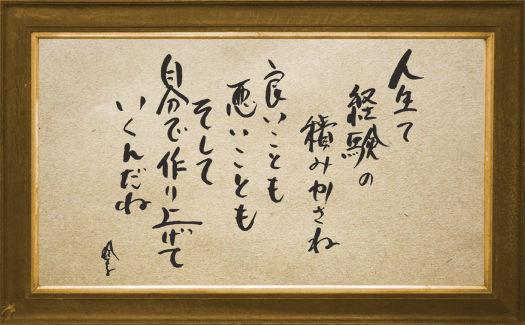 人生て
経験の
積みかさね
良いことも
悪いことも
そして
自分で作り上げて
いくんだね